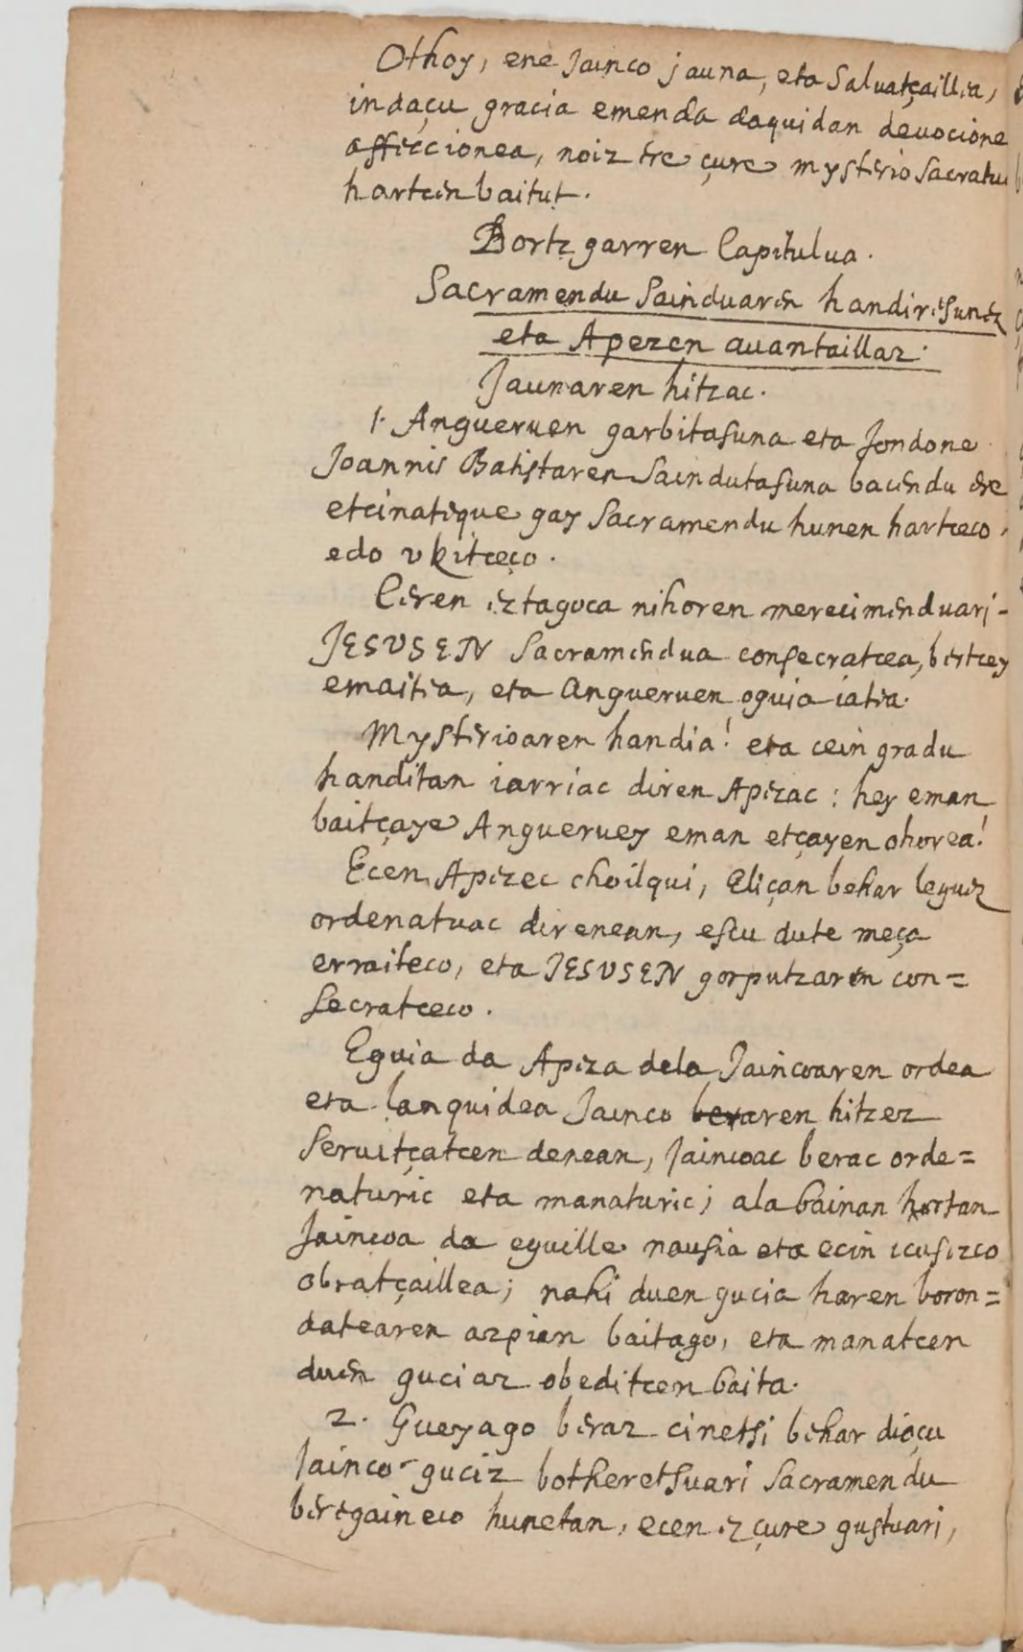 Othoy, ene Jainco jauna, eta Saluatçaillia,
indaçu gracia emenda daquidan deuocione
affeccionea, noiz ere çure mysterio Sacratu
hartcen baitut.
Bortz garren Capitulua.
Sacramendu Sainduaren handiresunez
eta Apezen auantaillaz.
Jaunaren hitzac.
1. Angueruen garbitasuna eta Jondone
Joannis Batistaren Saindutasuna bacendu ere
etcinatique gay Sacramendu hunen hartceco,
edo vkitceço.
Ceren eztagoca nihoren merecimenduari
JESUSEN Sacramendua consecratcea, bertcey
emaitia, eta Angueruen oguia iatia.
Mysterioaren handia! eta cein gradu
handitan iarriac diren Apezac: hey eman
baitçaye Angueruey eman etçayen ohorea!
Ecen Apezec choilqui, Eliçan behar leguez
ordenatuac direnean, escu dute meça
erraiteco, eta JESUSEN gorputzaren con=
secratceco.
Eguia da Apeza dela Jaincoaren ordea
eta languidea Jainco beraren hitzez
Seruitçatcen denean, Jaincoac berac orde=
naturic eta manaturic; ala bainan hortan
Jaincoa da eguille nausia eta ecin icusizco
obratçaillea; nahi duen gucia haren boron=
datearen azpian baitago, eta manatcen
duen guciaz obeditcen baita.
2. Gueyago beraz cinetsi behar dioçu
Jainco guciz botheretsuari Sacramendu
beregaineco hunetan, ecen ez çure gustuari,